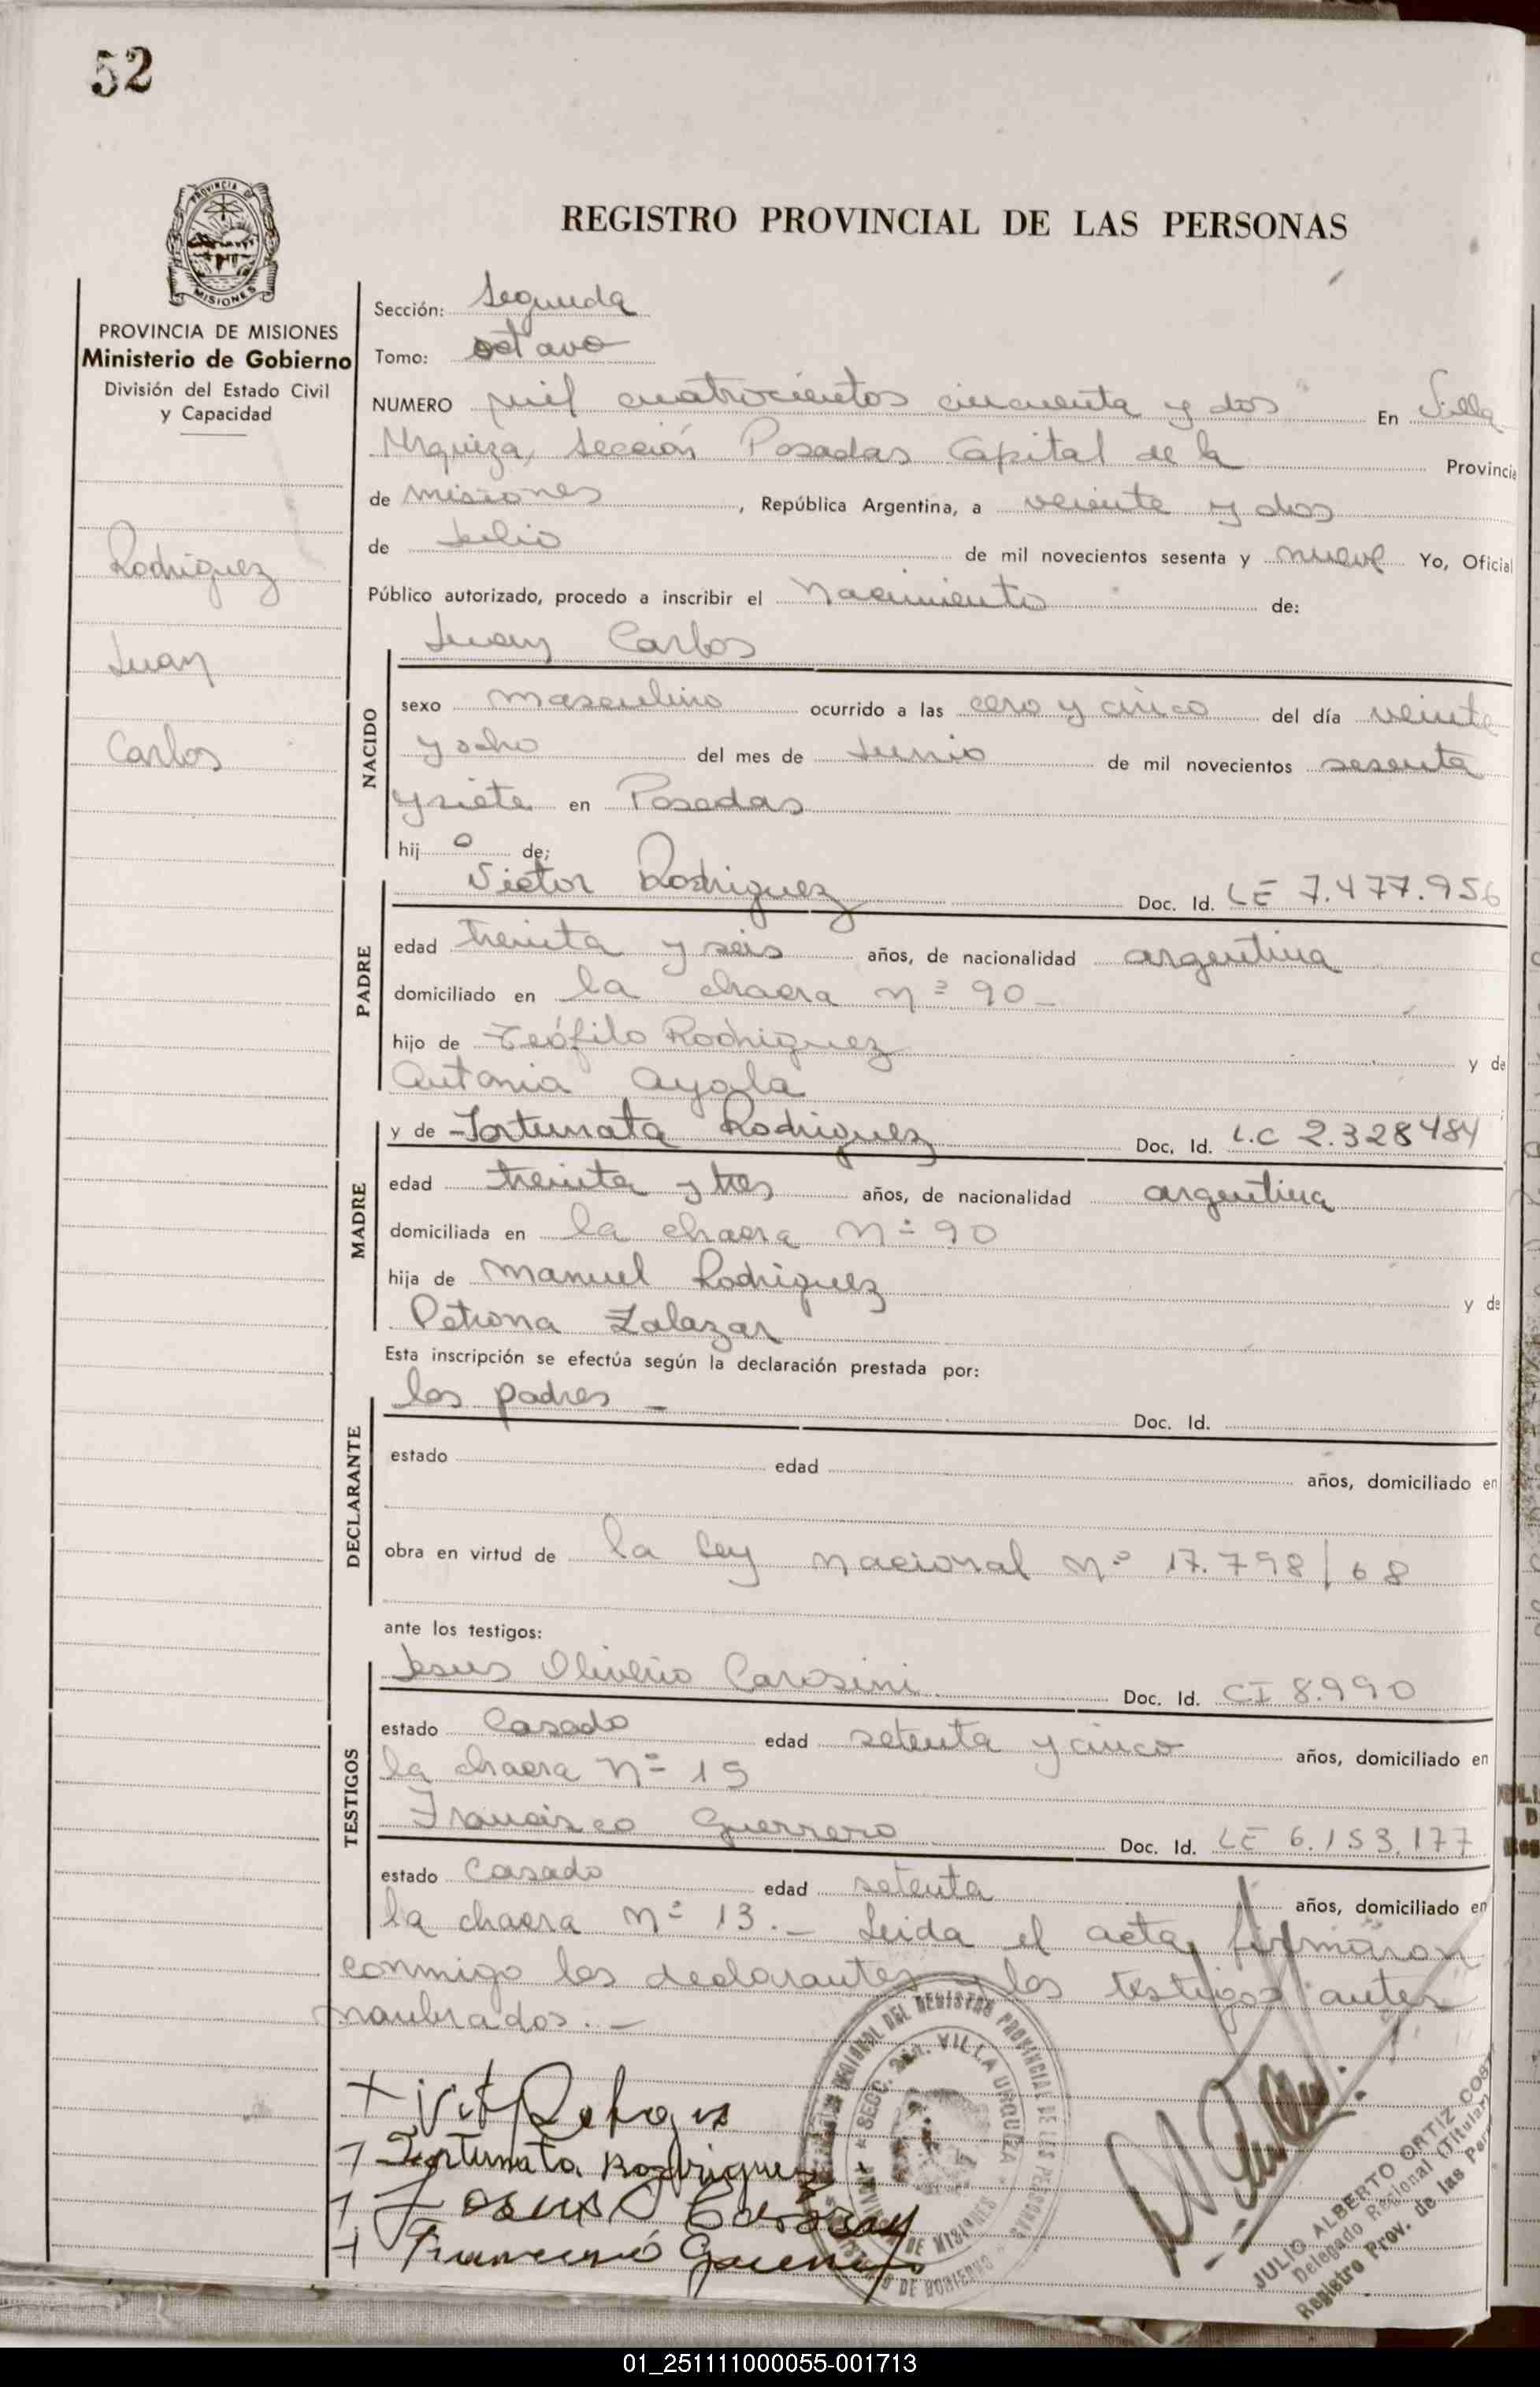 52
PROVINCIA DE MISIONES
REGISTRO PROVINCIAL DE LAS PERSONAS
PROVINCIA DE MISIONES
Ministerio de Gobierno
División del Estado Civil
y Capacidad
Rodriguez
Juan
Carlos
Sección: Segunda
Tomo: octavo
NUMERO mil cuatrocientos cincuenta y dos En Villa
Urquiza, Sección Posadas Capital de la Provincia
de Misiones, República Argentina, a veinte y dos
de Julio de mil novecientos sesenta y nueve Yo, Oficial
Público autorizado, procedo a inscribir el Nacimiento de:
Juan Carlos
NACIDO
sexo masculino ocurrido a las cero y cinco del día veinte
y ocho del mes de Junio de mil novecientos sesenta
y siete en Posadas
hijo de;
Victor Rodriguez Doc. Id. LE 7.477.956
PADRE
edad treinta y seis años, de nacionalidad argentina
domiciliado en la chacra nº 90 -
hijo de Teófilo Rodriguez y de
Antonia Ayala
y de Fortunata Rodriguez Doc. Id. L.C 2.328484
MADRE
edad treinta y tres años, de nacionalidad argentina
domiciliada en la chacra nº 90
hija de Manuel Rodriguez y de
Petrona Zalazar
Esta inscripción se efectúa según la declaración prestada por:
los padres - Doc. Id.
DECLARANTE
estado edad años, domiciliado en
obra en virtud de la Ley nacional nº 17.798/68
ante los testigos:
Jesus Oliverio Carosini Doc. Id. CI 8.990
TESTIGOS
estado Casado edad setenta y cinco años, domiciliado en
la chacra nº 15
Francisco Guerrero Doc. Id. LE 6.153.177
estado Casado edad setenta años, domiciliado en
la chacra nº 13.- Leida el acta, firmaron
conmigo los declarantes y los testigos antes
nombrados.-
Fortunata Rodriguez
SECC. 2da. VILLA URQUIZA
REGIONAL DEL REGISTRO PROVINCIAL DE LAS PERSONAS
JULIO ALBERTO ORTIZ
Delegado Regional (Titular
Registro Prov. de las Per
01_251111000055-001713